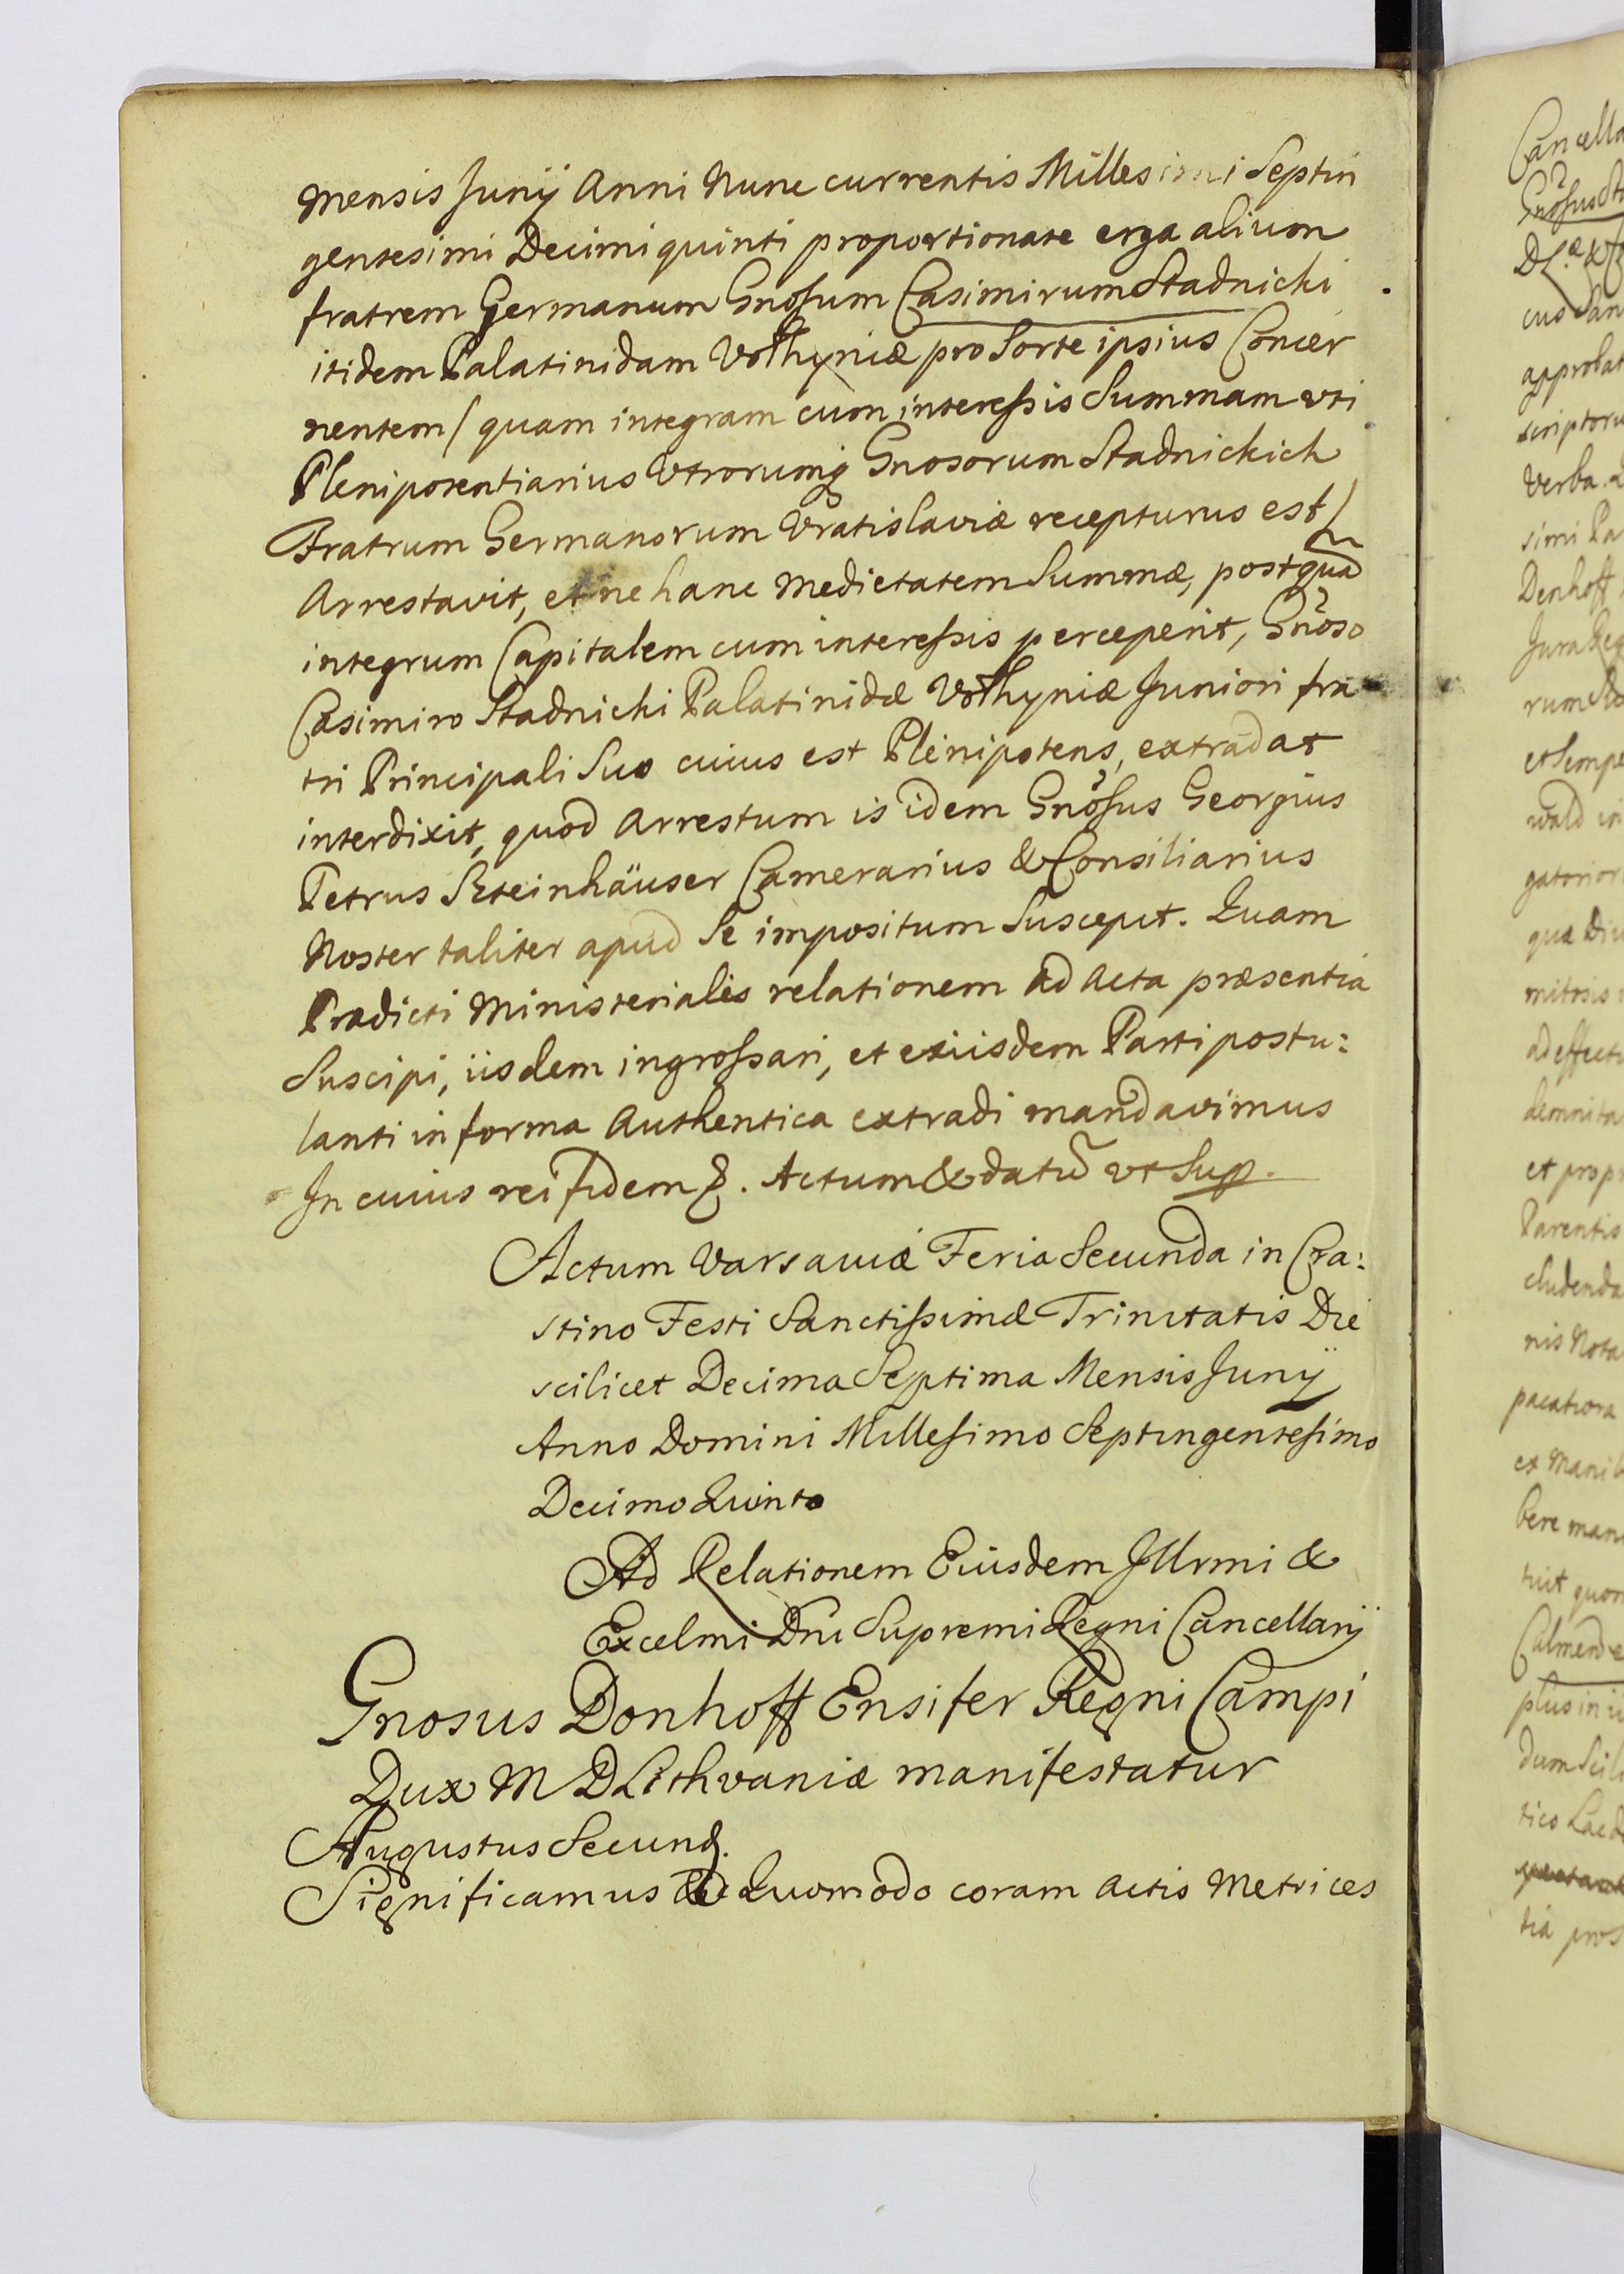 mensis Junij Anni Nunc currentis Millesimi Septin
gentesimi Decimi quinti proportionate erga alium
fratrem Germanum Gnosum Casimirum Stadnicki
itidem Palatinidam Volhyniæ pro Sorte ipsius Concer
nentem / quam integram cum interessis Summam uti
Plenipotentiarius Utrorumq Gnosorum Stadnickich
Fratrum Germanorum Vratislaviæ recepturus est /
Arrestavit, et ne hanc Medietatem Summæ, postquã
integrum Capitalem cum interessis perceperit, Gnoso
Casimiro Stadnicki Palatinidæ Volhyniæ Juniori fra
tri Principali Suo cuius est Plenipotens, extradat
interdixit, quod Arrestum is idem Gnosus Georgius
Petrus Steinhäuser Camerarius & Consiliarius
Noster taliter apud Se impositum Suscepit. Quam
Prædicti Ministerialis relationem ad Acta præsentia
Suscipi, iisdem ingrossari, et ex iisdem Parti postu:
lanti in forma Authentica extradi mandavimus
In cuius rei fidem &. Actum & datũ ut Sup.
Actum Varsaviæ Feria Secunda in Cra:
stino Festi Sanctissimæ Trinitatis Die
scilicet Decima Septima Mensis Junij
Anno Domini Millesimo Septingentesimo
Decimo Quinto
Ad Relationem Eiusdem Illrmi &
Excelmi Dni Supremi Regni Cancellarij
Gnosus Donhoff Ensifer Regni Campi
Dux M D Lithvaniæ manifestatur
Augustus Secund.
Significamus &c Quomodo coram Actis Metrices
Cancella
Gnosus
cus San
approbat
scriptoru
Verba
simi Pa
Denhoff
Jura Reg
rum
et Sempe
wald in
gatorior
qua Diu
mitosis
ad effectu
demnita
et propr
Parentis
cludenda
nis Nota
pacatiora
ex Manib
bere man
tuit quon
Calmende
plus in
dum Scil
tico Laed
tia pros